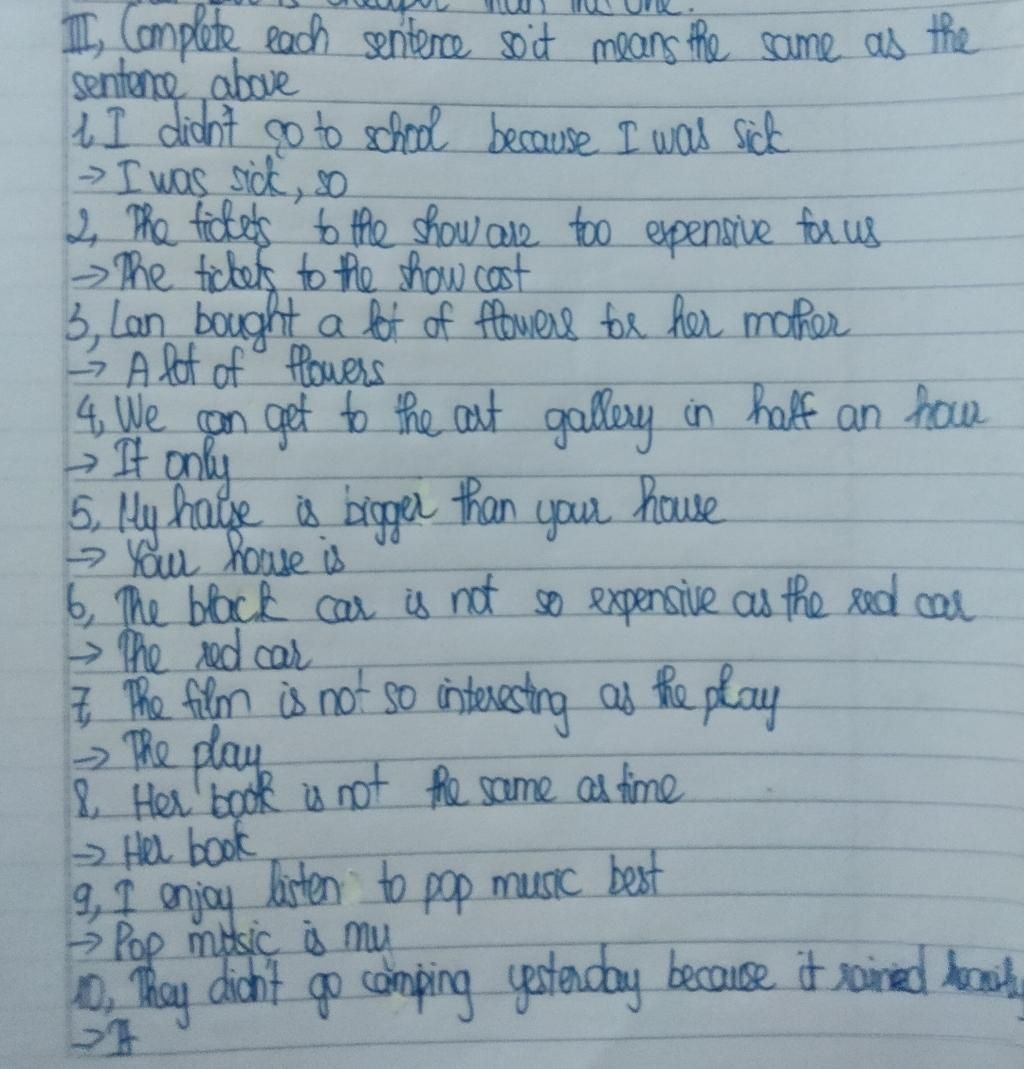 than the one.
III, Complete each sentence so it means the same as the
sentence above
1, I didn't go to school because I was sick
→ I was sick, so
2, The tickets to the show are too expensive for us
→ The tickets to the show cost
3, Lan bought a lot of flowers for her mother
→ A lot of flowers
4, We can get to the art gallery in half an hour
→ It only
5, My house is bigger than your house
→ Your house is
6, The black car is not so expensive as the red car
→ The red car
7, The film is not so interesting as the play
→ The play
8, Her book is not the same as time
→ Her book
9, I enjoy listen to pop music best
→ Pop music is my
10, They didn't go camping yesterday because it rained heavily
→ It